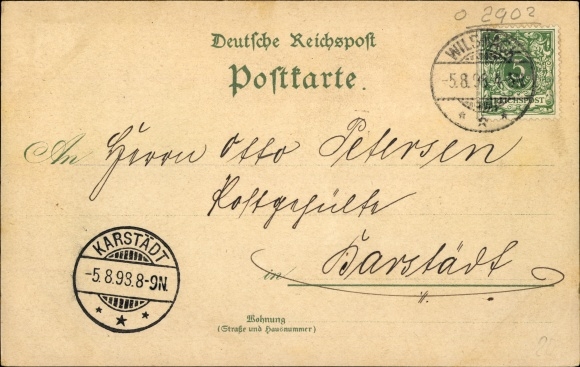 o 2902
Deutsche Reichspost
Postkarte.
WILSNACK
-5.8.98.
5
REICHSPOST
An Herrn Otto Petersen
Postgehülfe
in Karstädt
KARSTÄDT
-5.8.98.8-9N.
Wohnung
(Straße und Hausnummer)